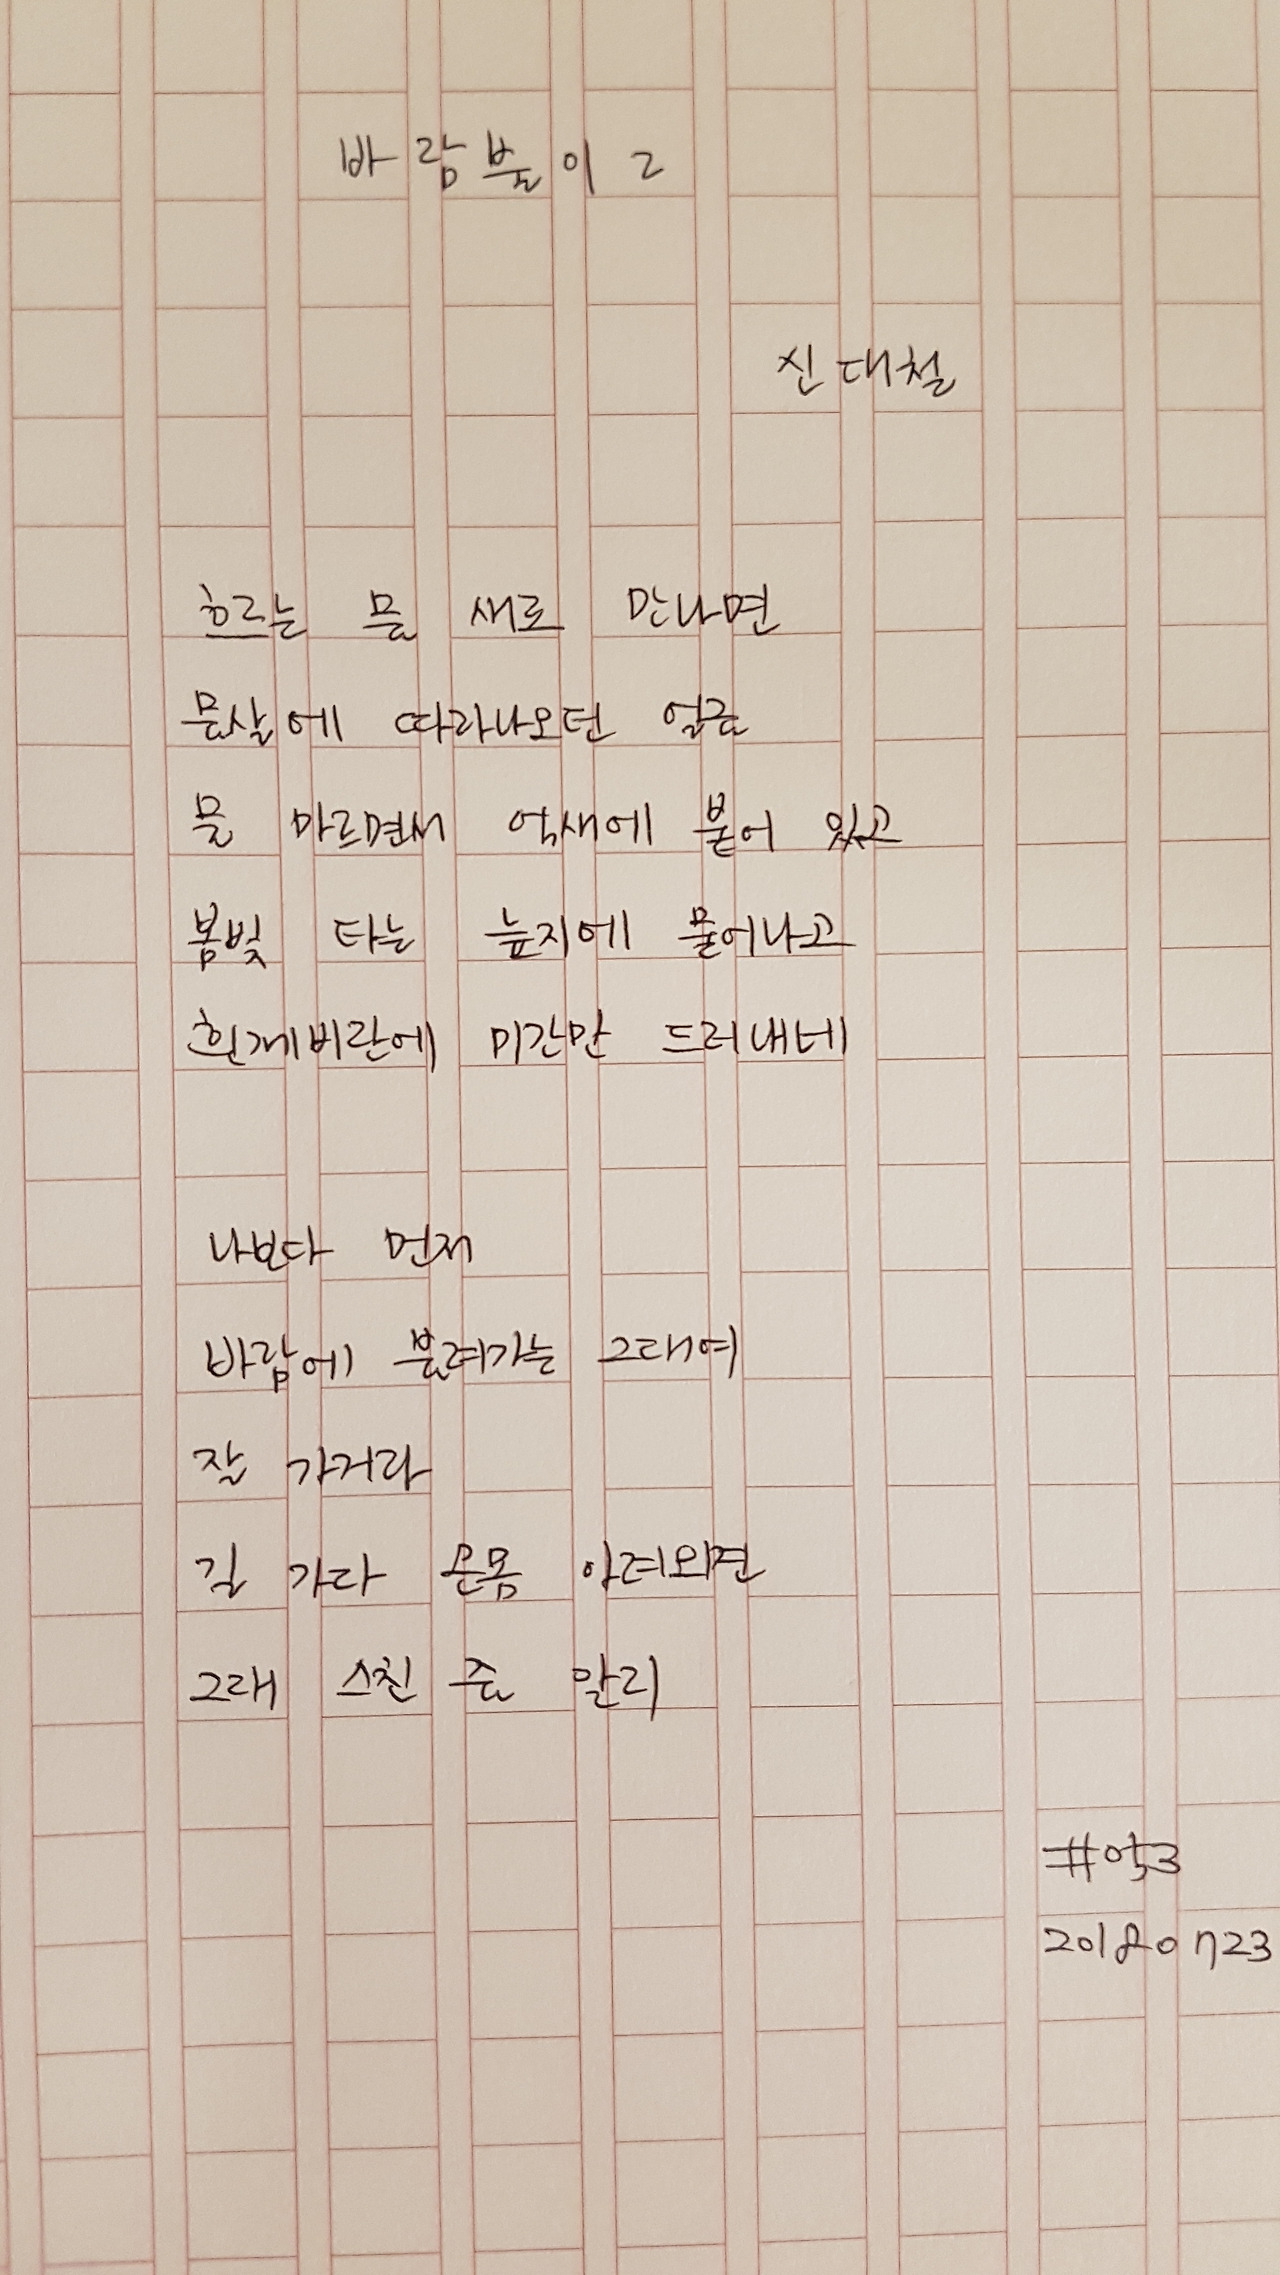 바람불이 2
신대철
흐르는 물 새로 만나면
물살에 따라나오던 얼굴
물 마르면서 억새에 붙어 있고
봄빛 타는 늪지에 묻어나고
흰제비란에 미간만 드러내네
나보다 먼저
바람에 불려가는 그대여
잘 가거라
길 가다 온몸 아려오면
그대 스친 줄 알리
#억3
20180723